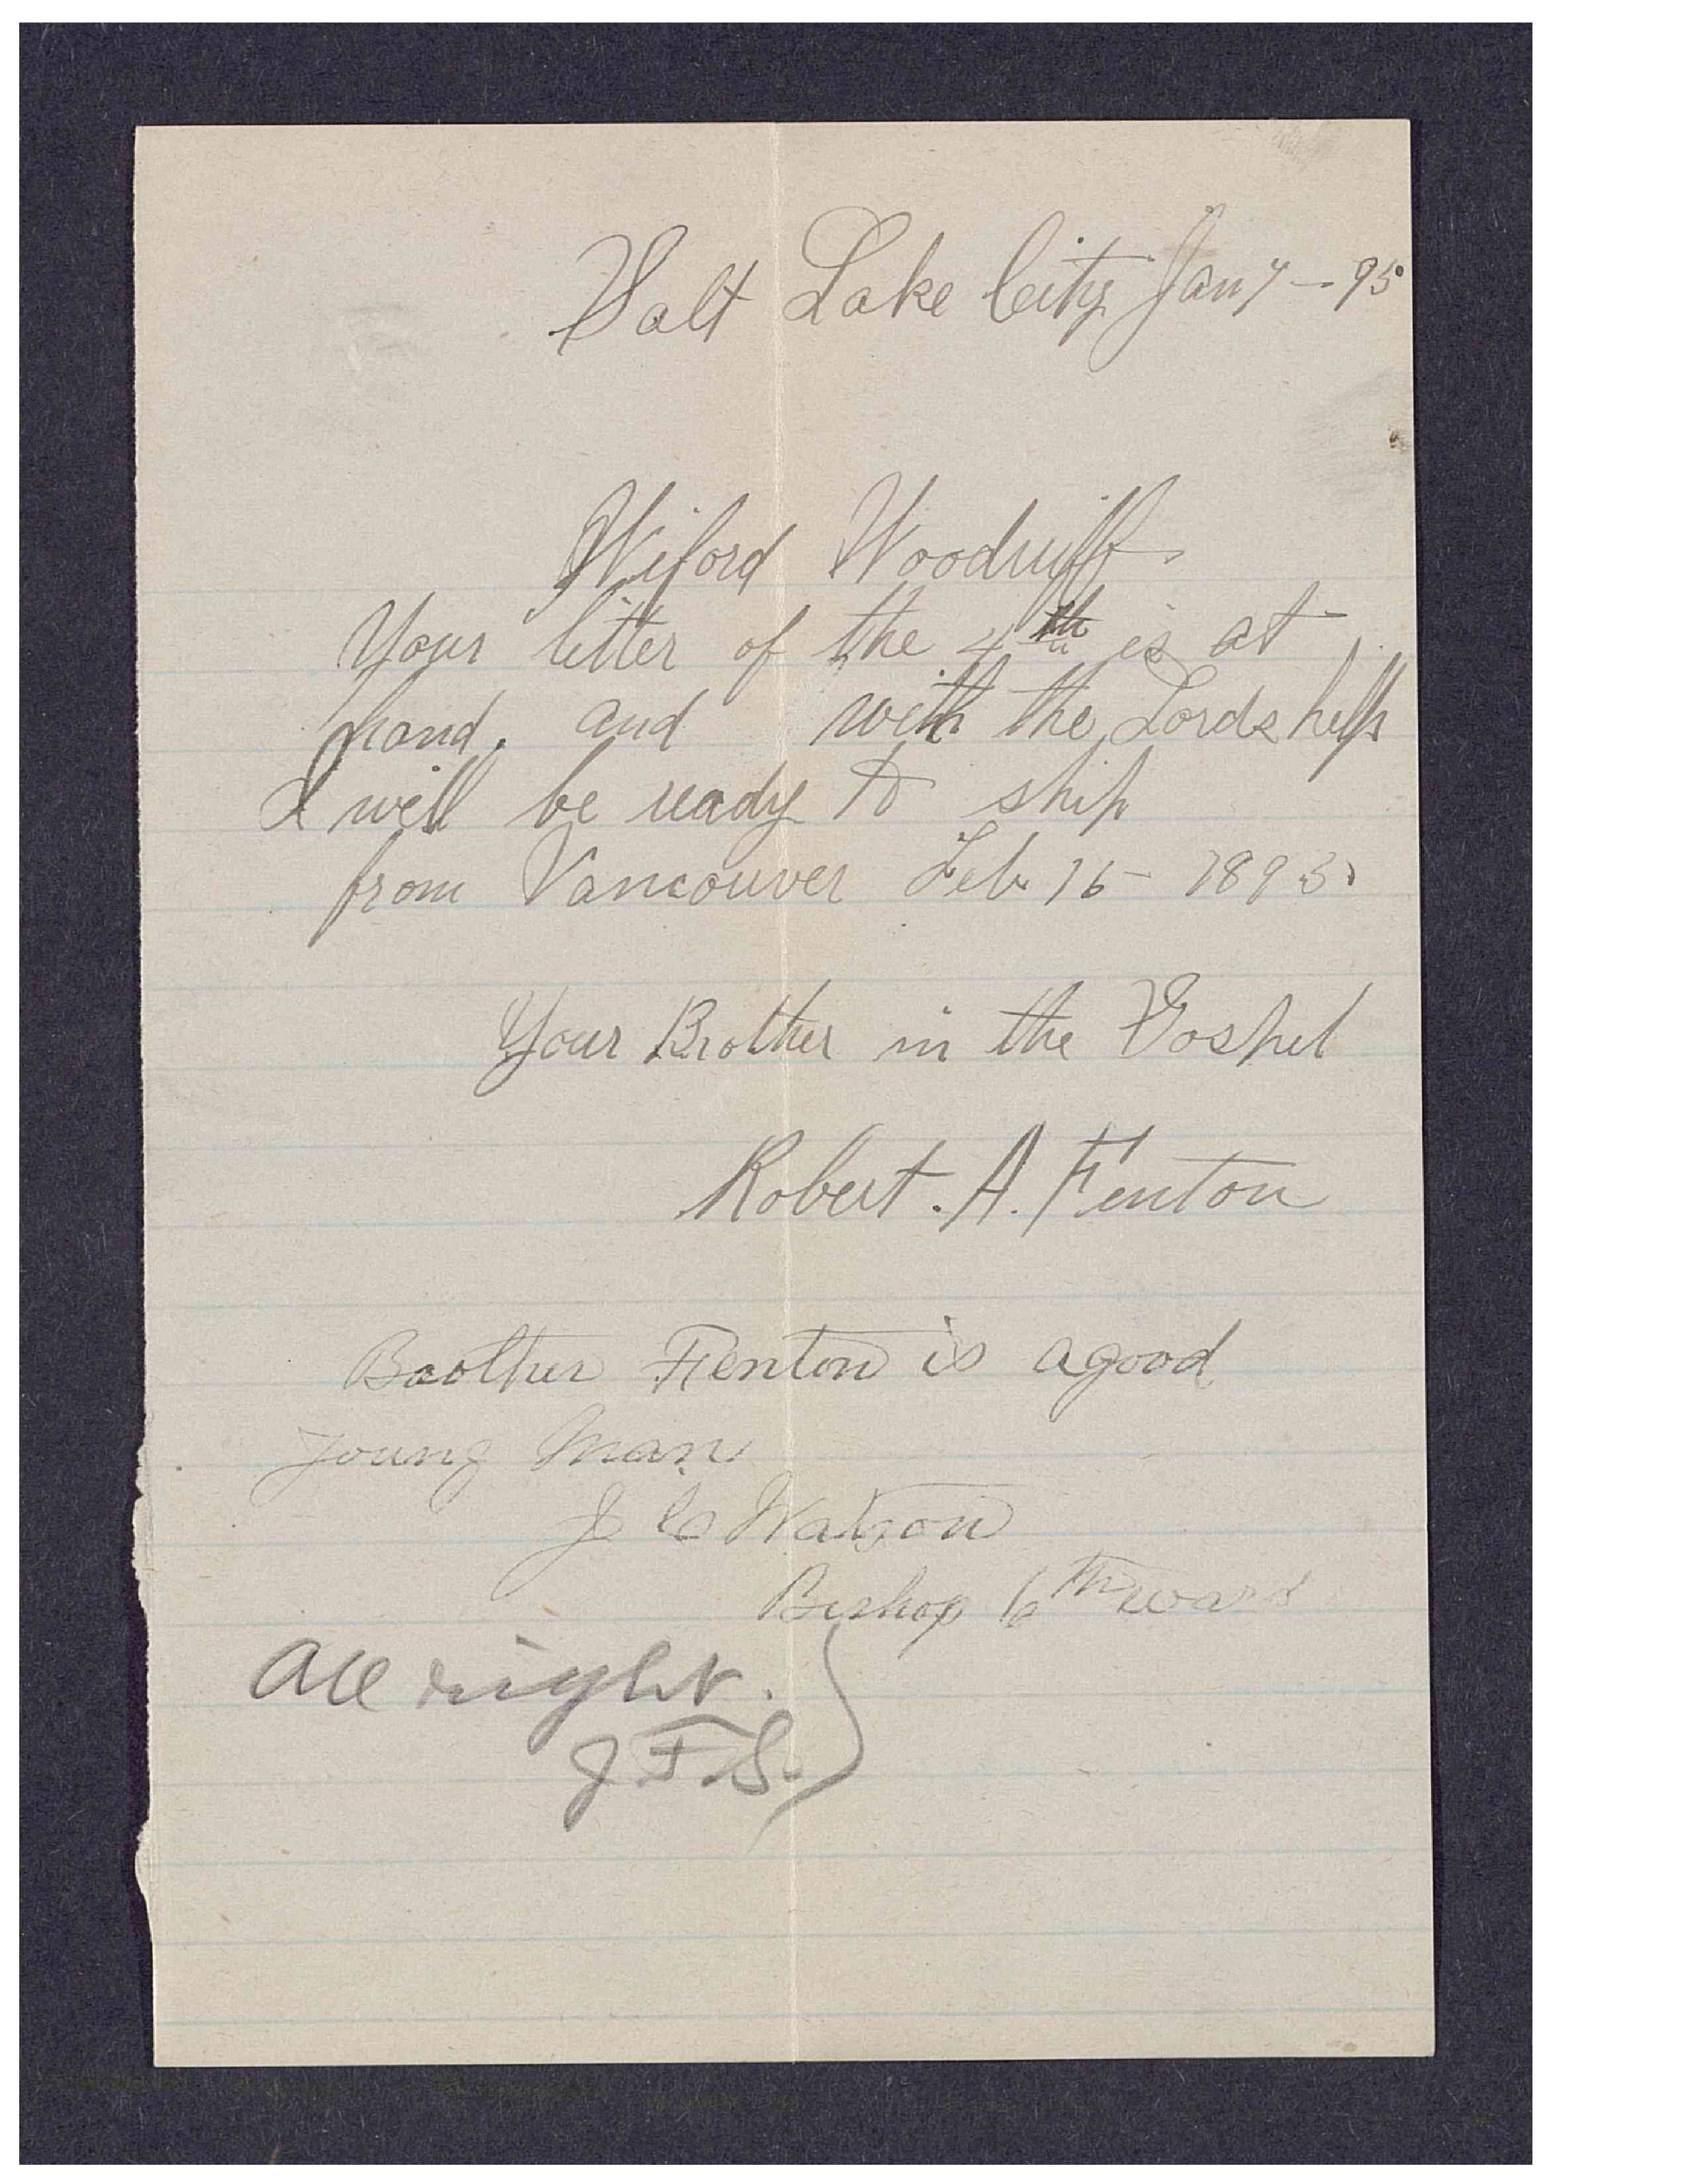 Salt Lake City Jan 7 - 95
Wiford Woodruff
Your letter of the 4th is at
hand. and with the Lords help
I will be ready to ship
from Vancouver Feb 16 - 1895
Your Brother in the Gospel
Robert. A. Fenton
Brother Fenton is a good
young man
J C Watson
Bishop 6th ward
All right.
J. F. S.